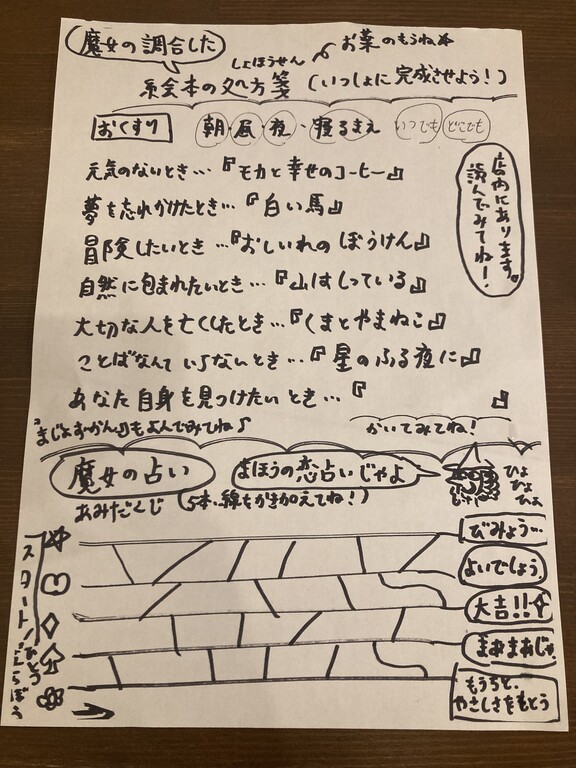 魔女の調合した
お薬のもうね
しょほうせん
絵本の処方箋(いっしょに完成させよう!)
おくすり 朝・昼・夜・寝るまえ いつでも どこでも
元気のないとき…『モカと幸せのコーヒー』
夢を忘れかけたとき…『白い馬』
冒険したいとき…『おしいれのぼうけん』
自然に包まれたいとき…『山はしっている』
大切な人を亡くしたとき…『くまとやまねこ』
ことばなんていらないとき…『星のふる夜に』
あなた自身を見つけたいとき…『 』
店内にあります。
読んでみてね!
『まじょずかん』もよんでみてね♪
かいてみてね!
魔女の占い
まほうの恋占いじゃよ
ひょ
ひょ
ひょ
あみだくじ(5本、線をかき加えてね!)
スタート!ひとつえらぼう
びみょう…
よいでしょう。
大吉!!
まあまあじゃ
もうちと、
やさしさをもとう